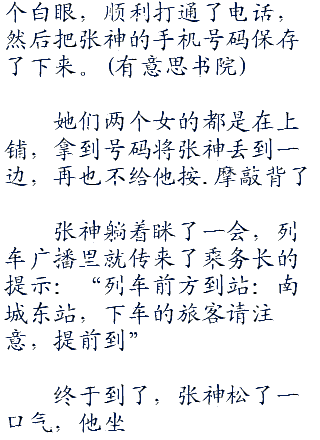 个白眼，顺利打通了电话，
然后把张神的手机号码保存
了下来。(有意思书院)
她们两个女的都是在上
铺，拿到号码将张神丢到一
边，再也不给他按.摩敲背了
张神躺着眯了一会，列
车广播里就传来了乘务长的
提示：“列车前方到站：南
城东站，下车的旅客请注
意，提前到”
终于到了，张神松了一
口气，他坐